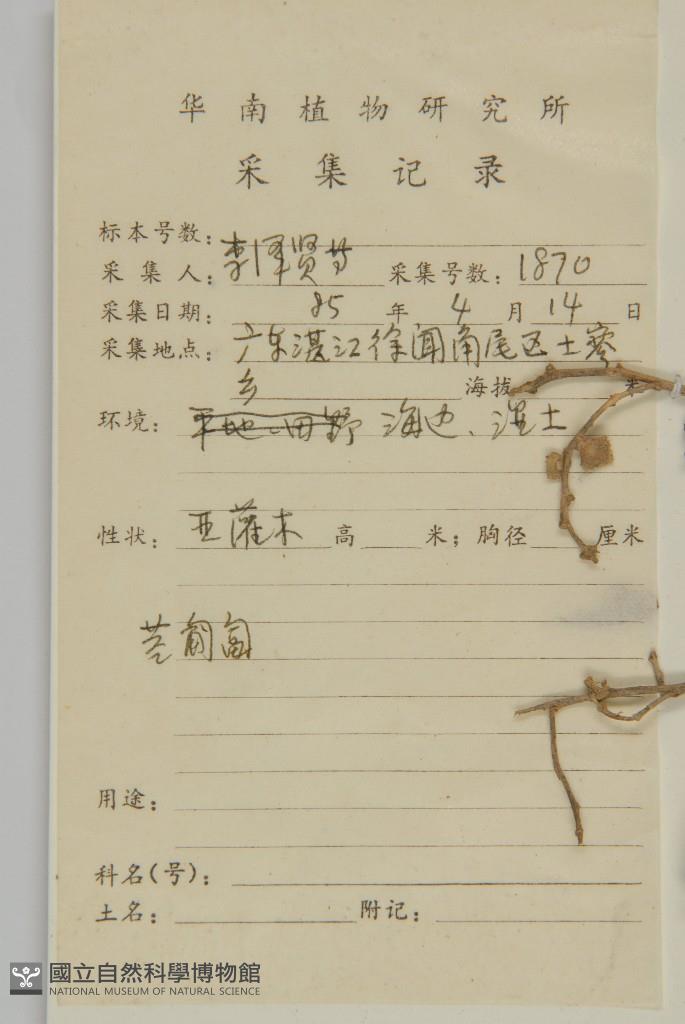 华南植物研究所
采集记录
标本号数：
采集人：李泽贤等 采集号数：1870
采集日期： 85 年 4 月 14 日
采集地点：广东湛江徐闻角尾区土寮
乡 海拔 米
环境：平地、田野 海边、湿土
性状：亚灌木 高 米；胸径 厘米
茎匍匐
用途：
科名(号)：
土名： 附记：
國立自然科學博物館
NATIONAL MUSEUM OF NATURAL SCIENCE